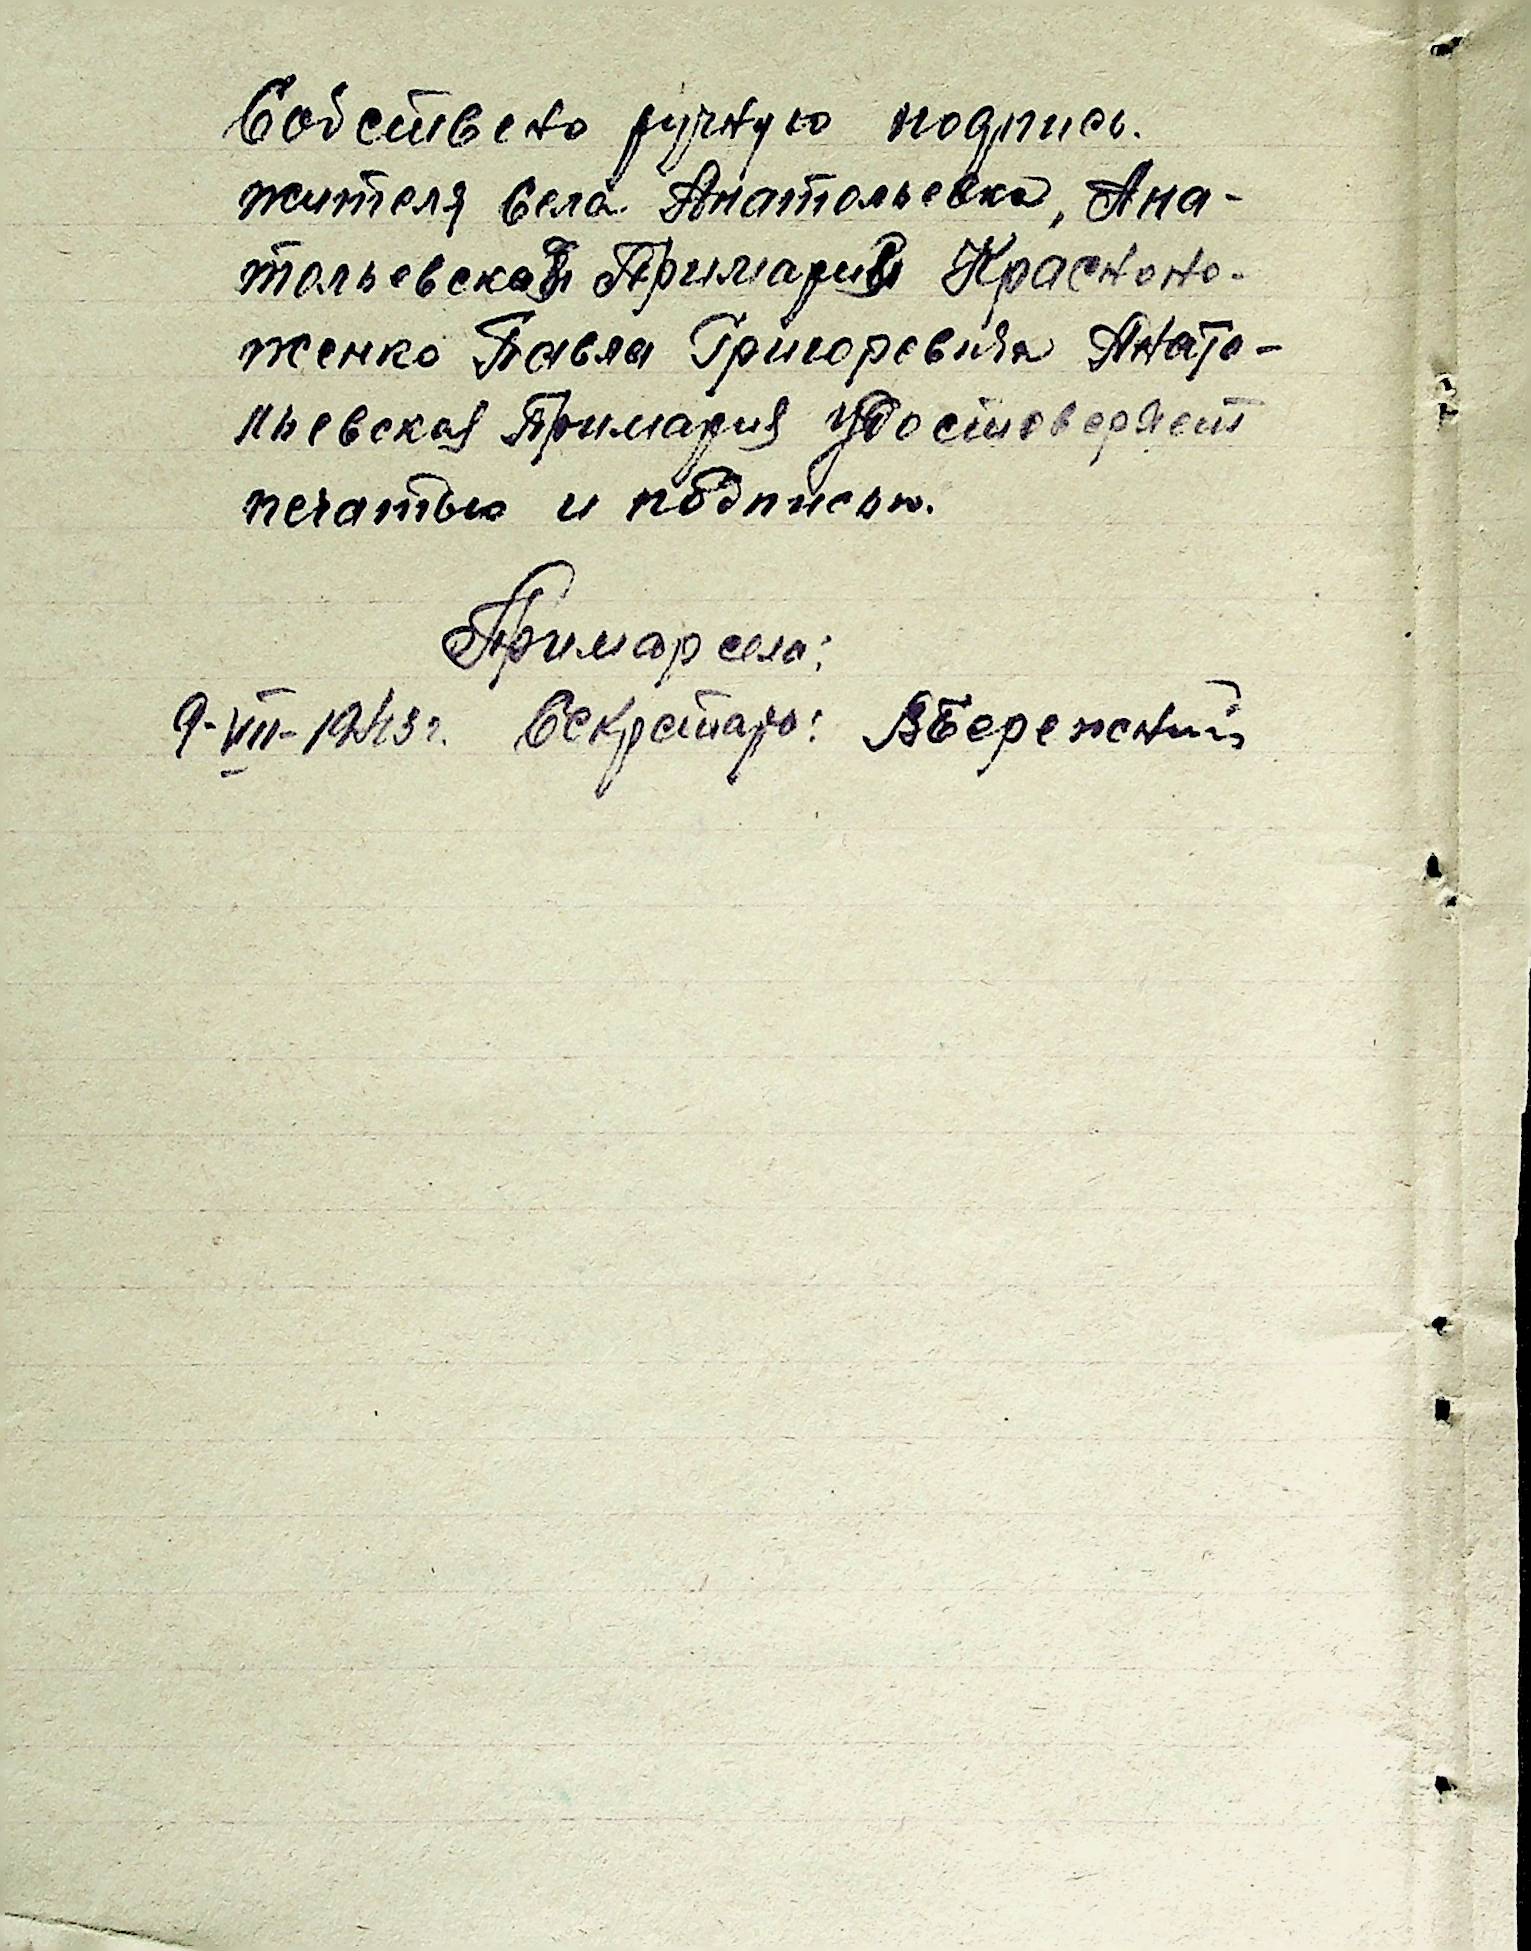 Собствено ручную подпись.
жителя села Анатольевка, Ана-
тольевской Примарии Красноно-
женко Павла Григоревича Анато-
льевская Примария удостоверяет
печатью и подписью.
Примар села:
9-VIII-1943г. Секретарь: ВБережний